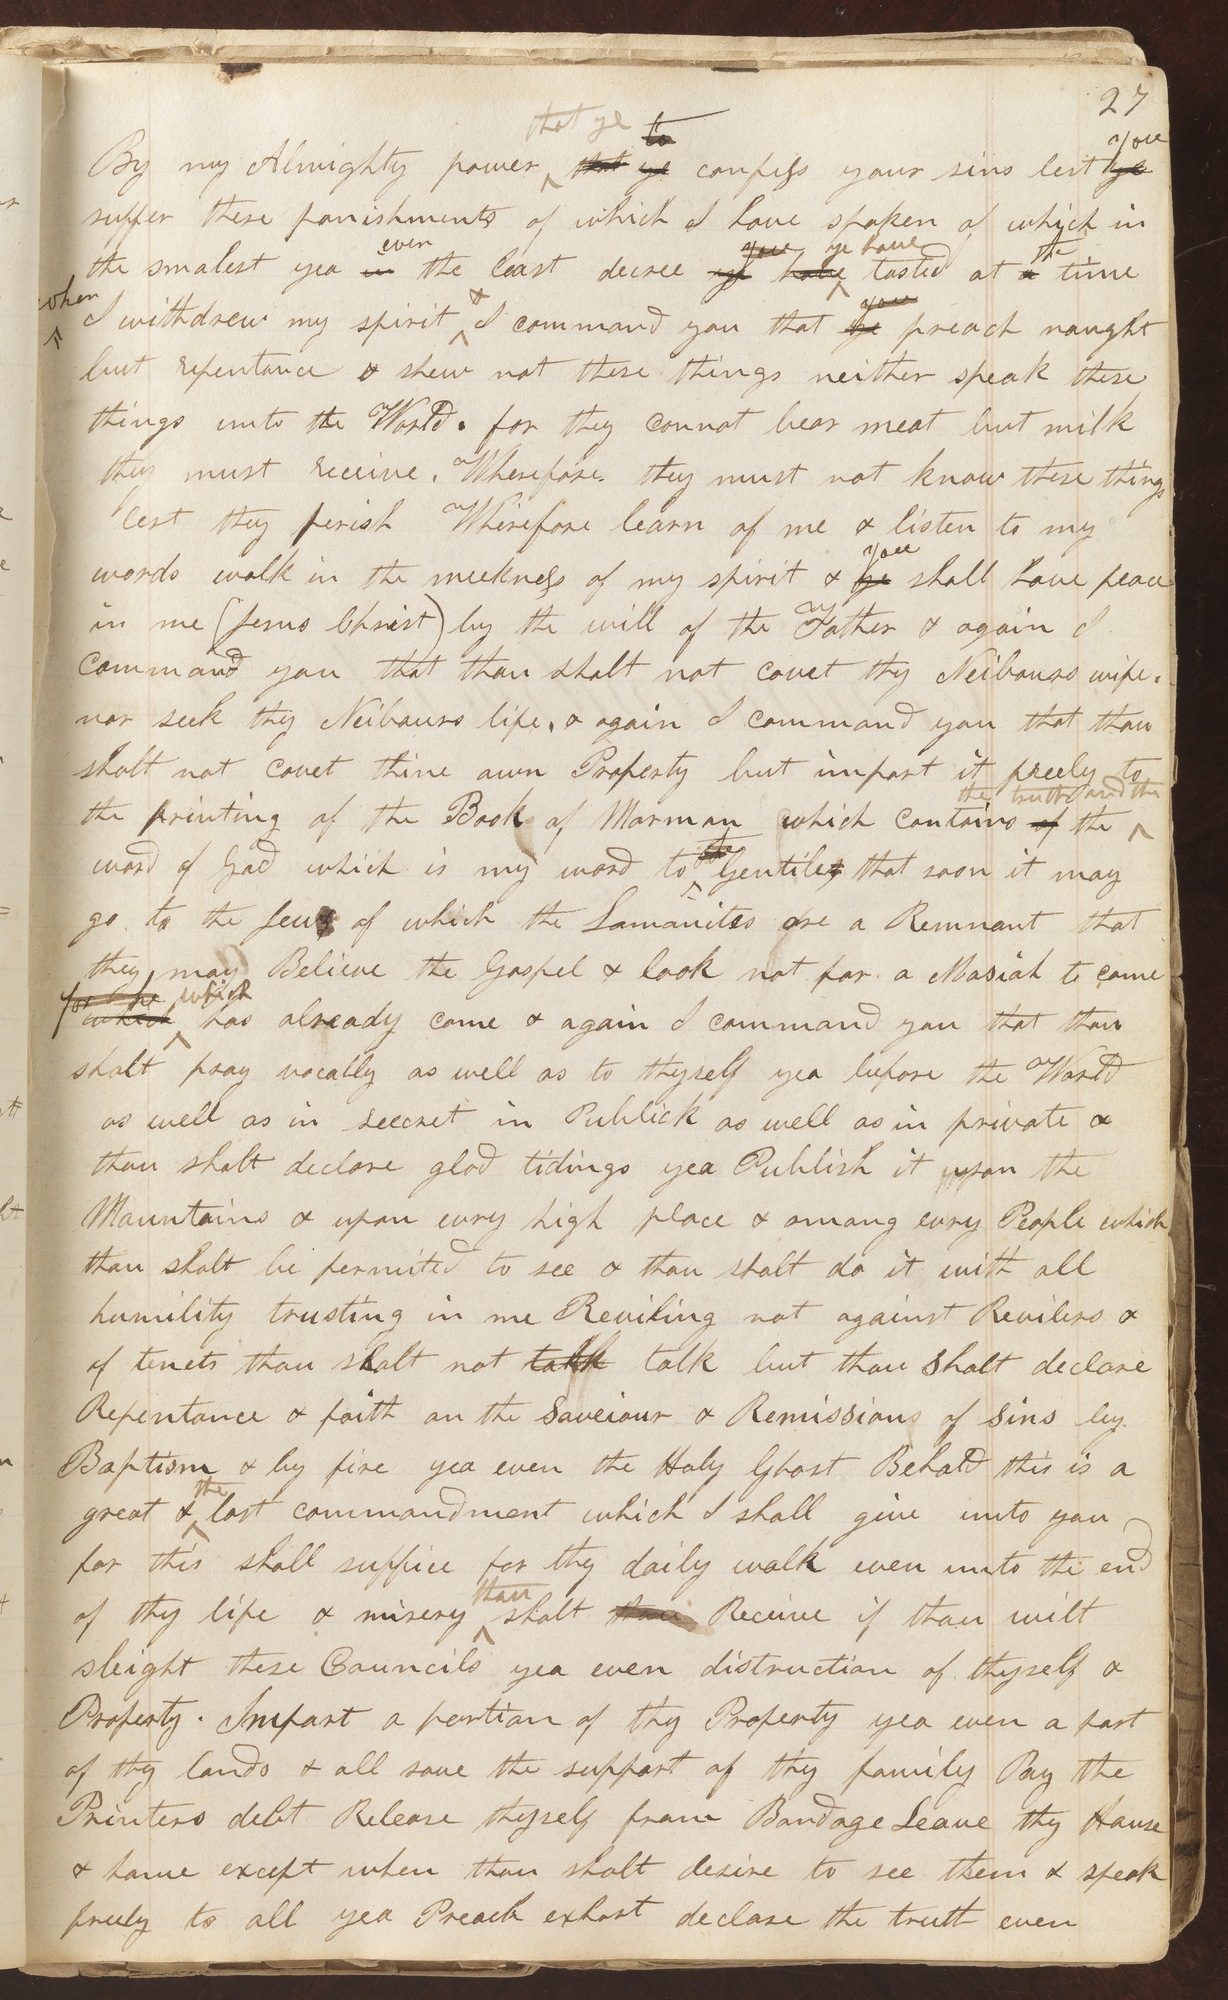 27
By my Almighty power ^that ye that ye to confess your sins lest ye you
suffer these punishments of which I have spoken of which in
the smalest yea in even the least decree ye you have ye have tasted at a the time
when I withdrew my spirit & I command you that ye you preach naught
but repentance & shew not these things neither speak these
things unto the World. for they cannot bear meat but milk
they must receive. Wherefore. they must not know these things
lest they perish Wherefore learn of me & listen to my
words walk in the meekness of my spirit & ye you shall have peace
in me (Jesus Christ) by the will of the Father & again I
command you that thou shalt not covet thy Neibours wife.
nor seek thy Neibours life. & again I command you that thou
shalt not covet thine own Property but impart it freely to
the printing of the Book of Mormon which contains of the ^the truth and the
word of God which is my word to ^the Gentiles that soon it may
go to the Jews of which the Lamanites are a Remnant that
they may Believe the Gospel & look not for a Masiah to come
which for he ^which has already come & again I command you that thou
shalt pray vocally as well as to thyself yea before the World
as well as in seecret in Publick as well as in private &
thou shalt declare glad tidings yea Publish it upon the
Mountains & upon evry high place & among evry People which
thou shalt be permited to see & thou shalt do it with all
humility trusting in me Reviling not against Revilers &
of tenets thou shalt not talk talk but thou shalt declare
Repentance & faith on the Saveiour & Remissions of Sins by
Baptism & by fire yea even the Holy Ghost Behold this is a
great & ^the last commandment which I shall give unto you
for this shall suffice for thy daily walk even unto the end
of thy life & misery ^thou shalt thou Receive if thou wilt
sleight these Councils yea even distruction of thyself &
Property. Impart a portion of thy Property yea even a part
of thy lands & all save the support of thy family Pay the
Printers debt Release thyself from Bondage Leave thy House
& home except when thou shalt desire to see them & speak
freely to all yea Preach exhort declare the truth even